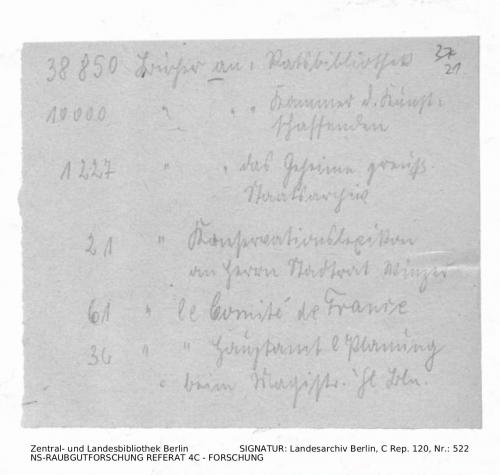 38 850 Bücher an: Ratsbibliothek 37
21
10 000 " " " Kammer d. Kunst-
schaffenden
1 227 " " das Geheime preuß.
Staatsarchiv
21 " Konservationslexikon
an Herrn Stadtrat Winzer
61 " le Comité de France
36 " " Hauptamt f. Planung
" beim Magistr. Bln.
Zentral- und Landesbibliothek Berlin SIGNATUR: Landesarchiv Berlin, C Rep. 120, Nr.: 522
NS-RAUBGUTFORSCHUNG REFERAT 4C - FORSCHUNG